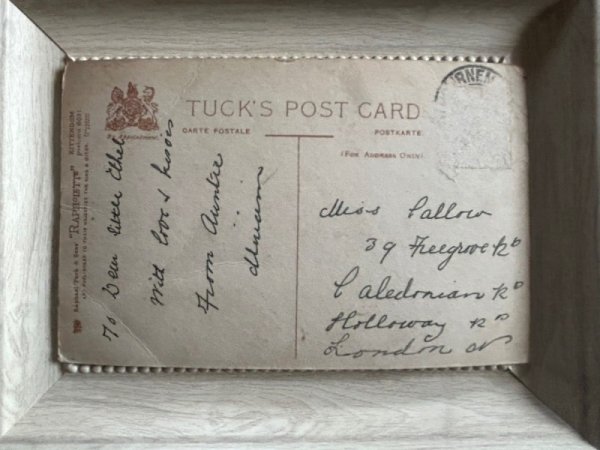 TUCK'S POST CARD
CARTE POSTALE
POSTKARTE
(FOR ADDRESS ONLY)
To Dear little Ethel
With love & kisses
From Auntie
Miss Callow
39 Freegrove Rd
Caledonian Rd
Holloway Rd
London N
RAPHAEL TUCK & SONS' "RAPHOLETTE"